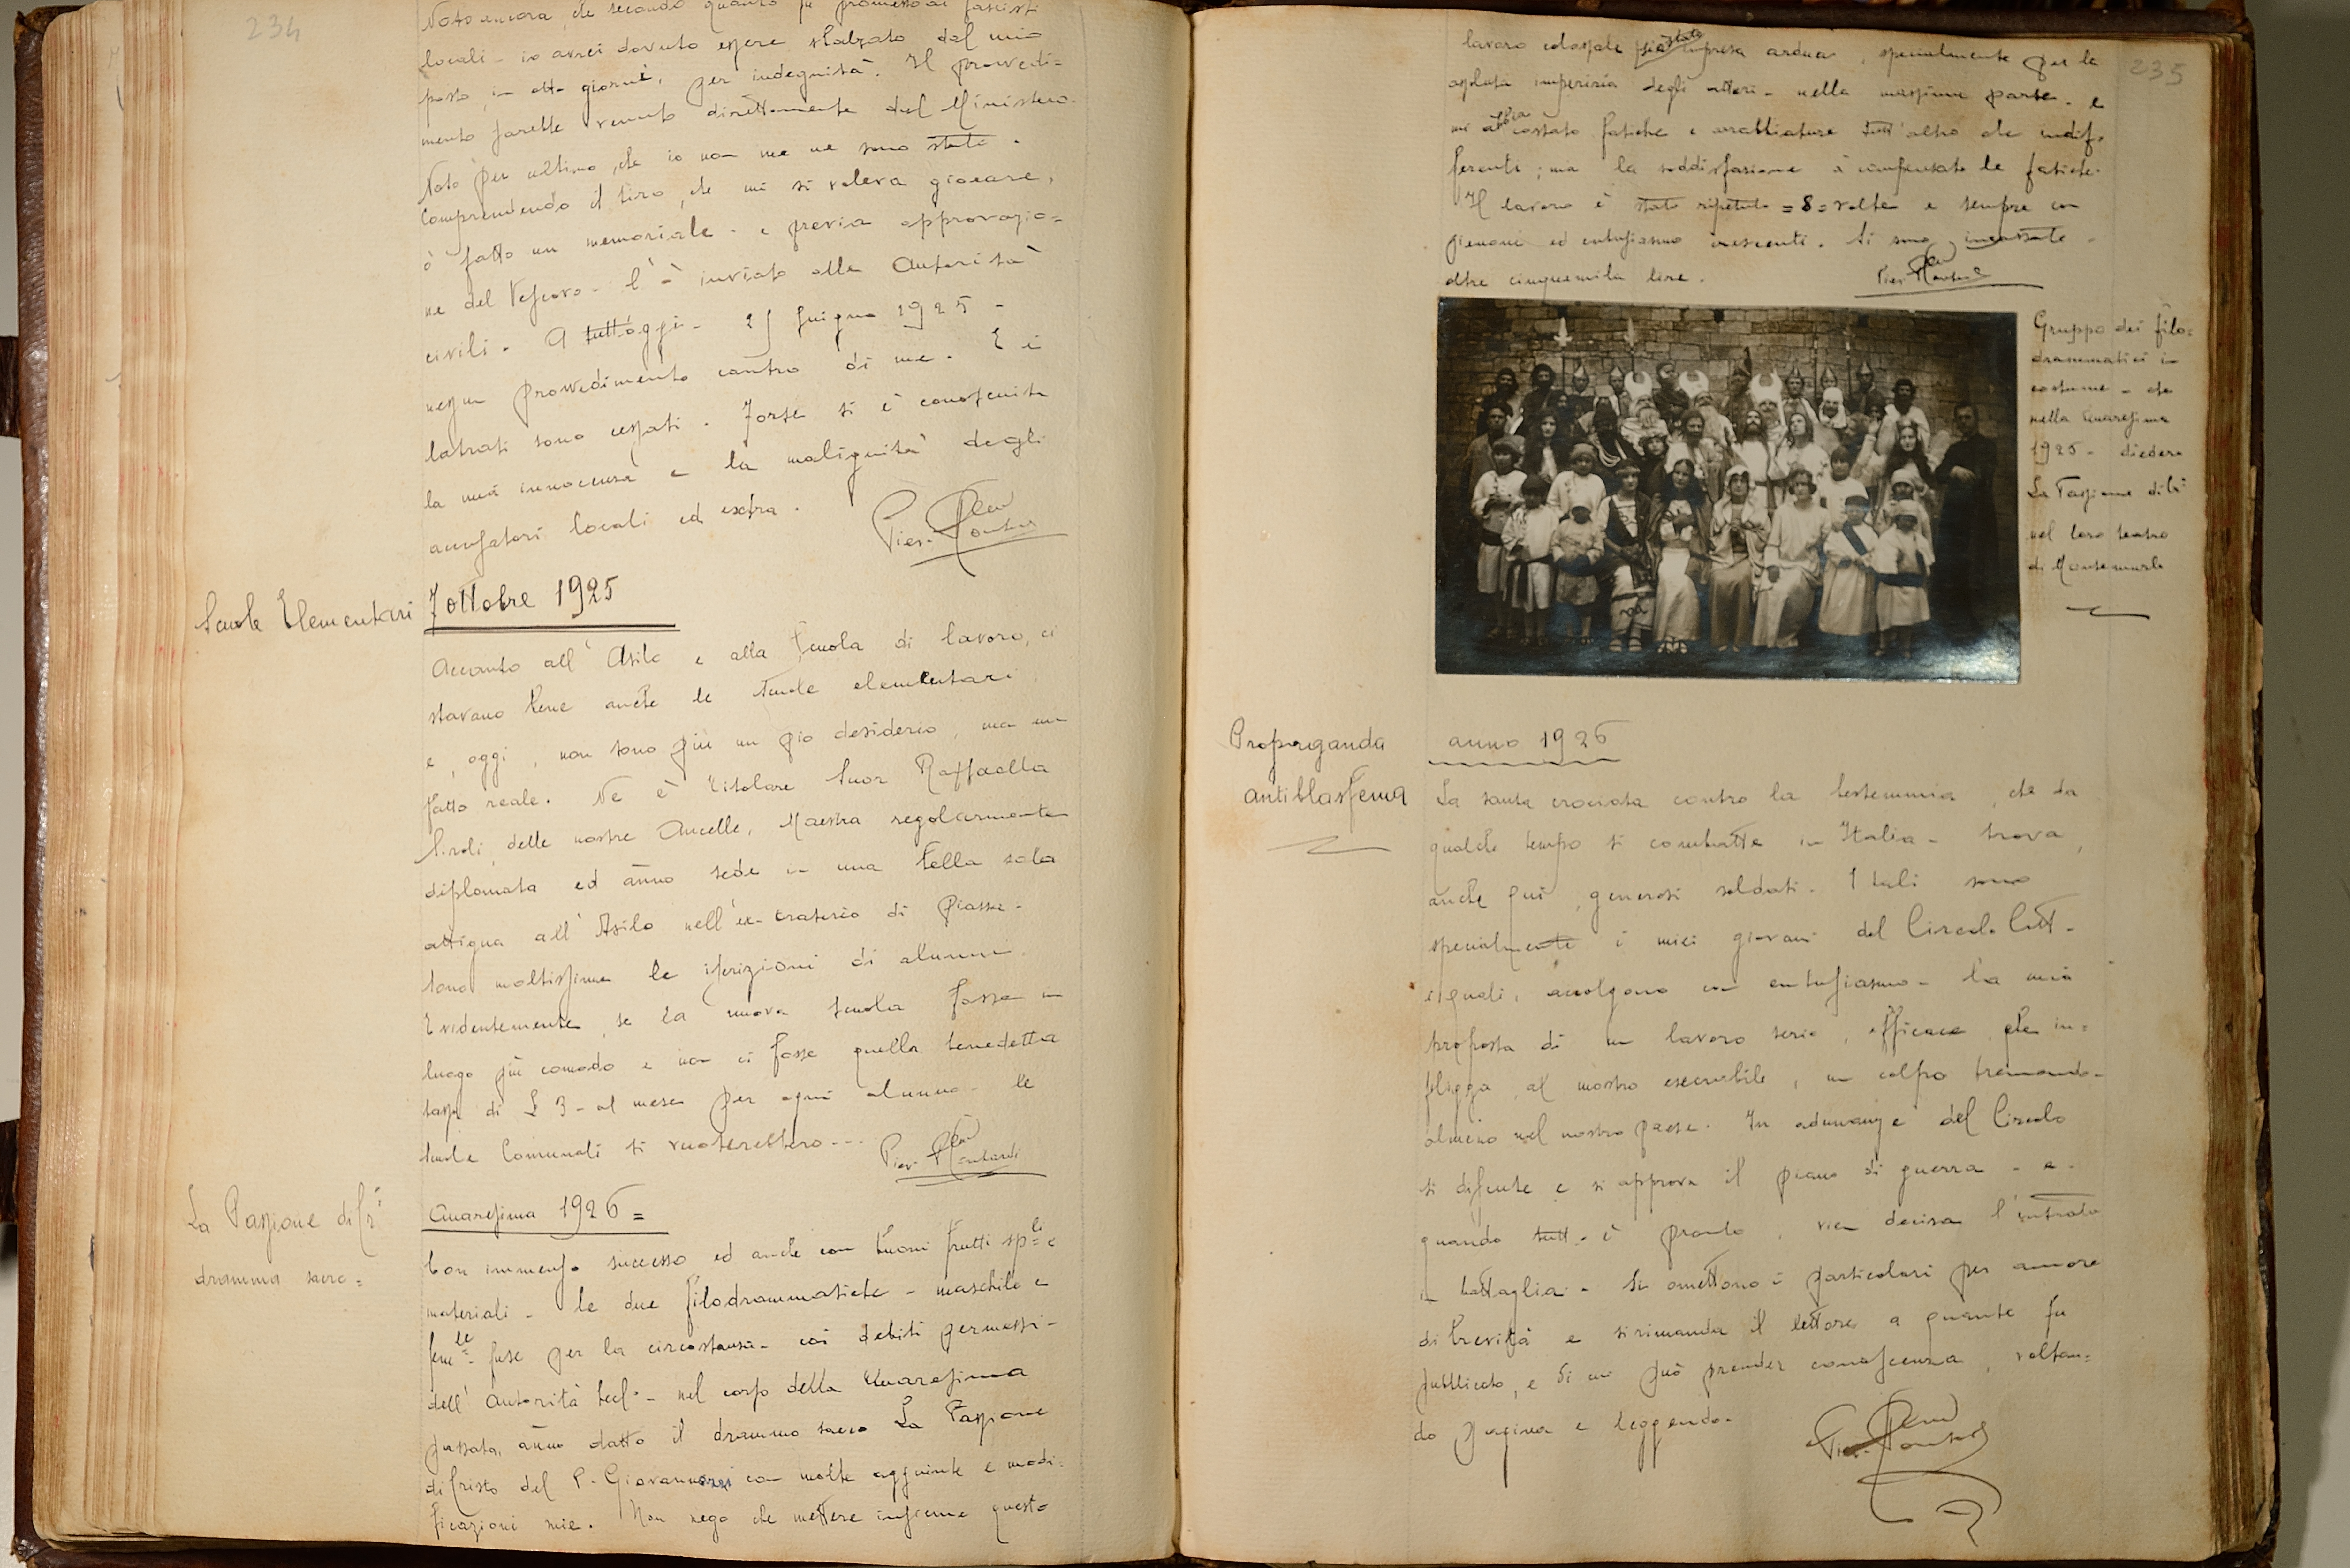 234
Noto ancora, che secondo quanto fu promesso ai fascisti
locali - io avrei dovuto essere sbalzato dal mio
posto, in otto giorni, per indegnità. Il provvedi=
mento sarebbe venuto direttamente dal Ministero.
Noto per ultimo, che io non me ne sono stato.
Comprendendo il tiro, che mi si voleva giocare,
ò fatto un memoriale - e previa approvazio=
ne del Vescovo - l'ò inviato alle Autorità
civili. A tutt'oggi - 25 giugno 1925 -
nessun provvedimento contro di me. E i
latrati sono cessati. Forse si è conosciuta
la mia innocenza e la malignità degli
accusatori locali ed extra.
Pier
Scuole Elementari
7 ottobre 1925
Accanto all'Asilo e alla Scuola di lavoro, ci
stavano bene anche le scuole elementari
e, oggi, non sono più un pio desiderio, ma un
fatto reale. Ne è titolare Suor Raffaella
delle nostre Ancelle, Maestra regolarmente
diplomata ed ànno sede in una bella sala
attigua all'Asilo nell'ex-oratorio di piazza.
Sono moltissime le iscrizioni di alunni.
Evidentemente, se la nuova scuola fosse in
luogo più comodo e non ci fosse quella benedetta
tassa di £ 3 - al mese per ogni alunno - le
scuole Comunali si vuoterebbero ---
Pier
La Passione di Cr.
dramma sacro =
Quaresima 1926 =
Con immenso successo ed anche con buoni frutti sp.li e
materiali - le due filodrammatiche - maschile e
fem.le fuse per la circostanza - coi debiti permessi -
dell'Autorità Eccl. - nel corso della Quaresima
passata, ànno dato il dramma sacro La Passione
di Cristo del P. Giovannozzi con molte aggiunte e modi=
ficazioni mie. Non nego che mettere insieme questo
235
lavoro colossale sia stata impresa ardua, specialmente per la
assoluta imperizia degli attori - nella massima parte - e
mi abbia costato fatiche e arrabbiature tutt'altro che indif=
ferenti; ma la soddisfazione à compensato le fatiche.
Il lavoro è stato ripetuto = 8 = volte e sempre con
pienoni ed entusiasmo crescenti. Si sono incassate
oltre cinquemila lire.
Pier
Gruppo dei filo=
drammatici in
costume - che
nella Quaresima
1925 - diedero
La Passione di Cr.
nel loro teatro
di Montemurlo
Propaganda
antiblasfema
anno 1926
La santa crociata contro la bestemmia, che da
qualche tempo si combatte in Italia - trova,
anche qui, generosi soldati. I tali sono
specialmente i miei giovani del Circolo Catt.
i quali, accolgono con entusiasmo - la mia
proposta di un lavoro serio, efficace, che in=
fligga, al mostro esecrabile, un colpo tremendo -
almeno nel nostro paese. In adunanze del Circolo
si discute e si approva il piano di guerra - e -
quando tutto è pronto, vien decisa l'entrata
in battaglia. Si omettono i particolari per amore
di brevità e si rimanda il lettore a quanto fu
pubblicato, e di cui può prender conoscenza, voltan=
do pagina e leggendo.
Pier